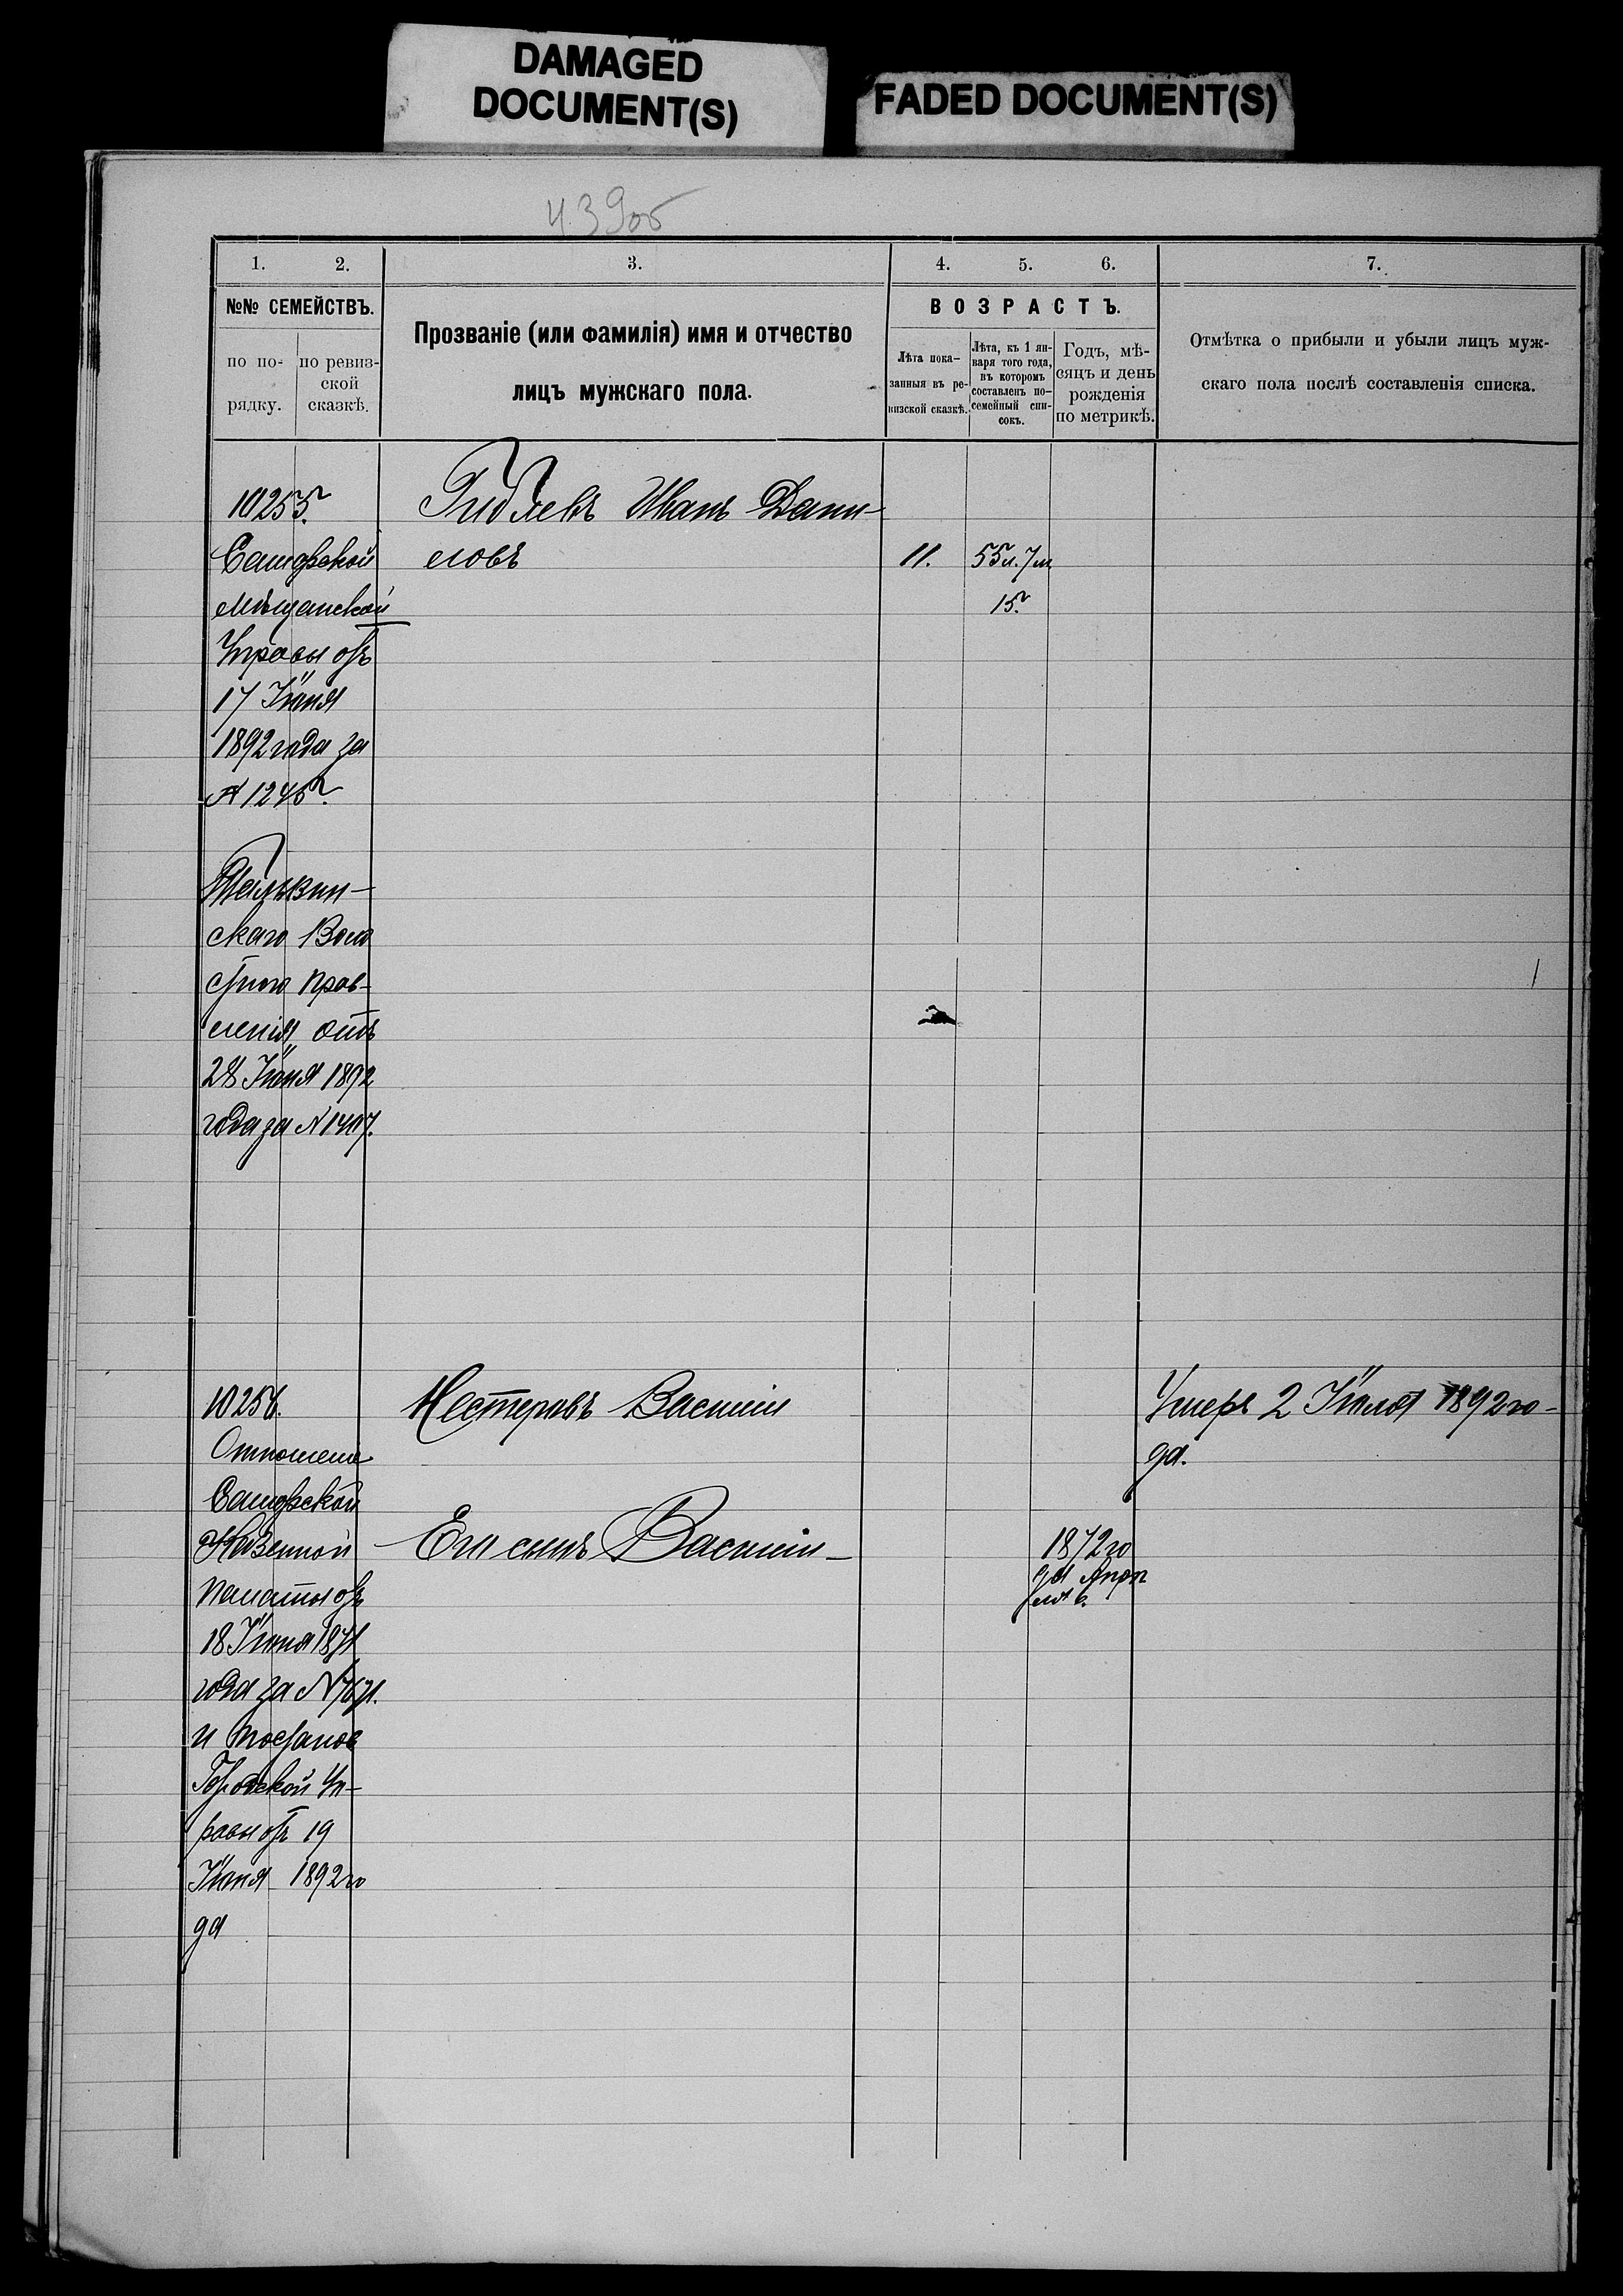 DAMAGED
DOCUMENT(S)
FADED DOCUMENT(S)
439об
1. 2. 3. 4. 5. 6. 7.
№№ СЕМЕЙСТВЪ.
по по-
рядку.
по ревиз-
ской
сказкѣ.
Прозваніе (или фамилія) имя и отчество
лицъ мужскаго пола.
ВОЗРАСТЪ.
Лѣта пока-
занныя въ ре-
визской сказкѣ.
Лѣта, къ 1 ян-
варя того года,
въ которомъ
составленъ по-
семейный спи-
сокъ.
Годъ, мѣ-
сяцъ и день
рожденія
по метрикѣ.
Отмѣтка о прибыли и убыли лицъ муж-
скаго пола послѣ составленія списка.
10255.
Самарской
Мѣщанской
Управы отъ
17 Іюня
1892 года за
№ 1245.
скаго Воло
стного Прав-
ленія отъ
28 Іюня 1892
года за № 1407.
Иванъ Дани-
ловъ
11.
55 л. 7 м
15.
10256.
Отношеніе
Самарской
Казенной
Палаты отъ
18 Іюня 1871
года за №
и Постанов
Городской Уп-
равы отъ 19
Іюня 1892 го
да
Нестеровъ Василій
Его сынъ Василій
1872 го
да Апрѣ
ля 6.
Умеръ 2 Іюля 1892 го-
да.